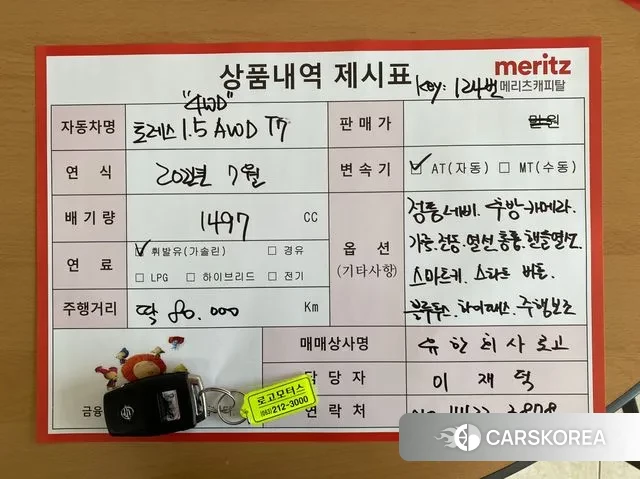 상품내역 제시표
meritz
메리츠캐피탈
"4WD"
Key: 124번
자동차명 토레스 1.5 AWD T7
판매가 만원
연식 2022년 7월
변속기 AT(자동) MT(수동)
배기량 1497 CC
옵션 (기타사항)
정품네비. 후방카메라.
가죽.전동.열선통풍.핸들열선.
스마트키. 스타트 버튼.
블루투스. 하이패스. 주행보조
연료 휘발유(가솔린) 경유
LPG 하이브리드 전기
주행거리 딱 80.000 Km
매매상사명 유한회사로고
담당자 이재덕
연락처
금융
로고모터스
(063)212-3000
CARSKOREA